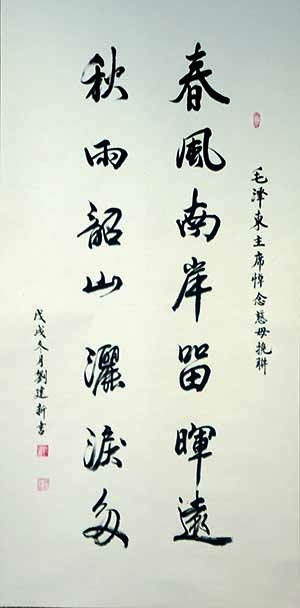 毛澤東主席悼念慈母挽聯
春風南岸留暉遠
秋雨韶山灑淚多
戊戌冬月劉建新書